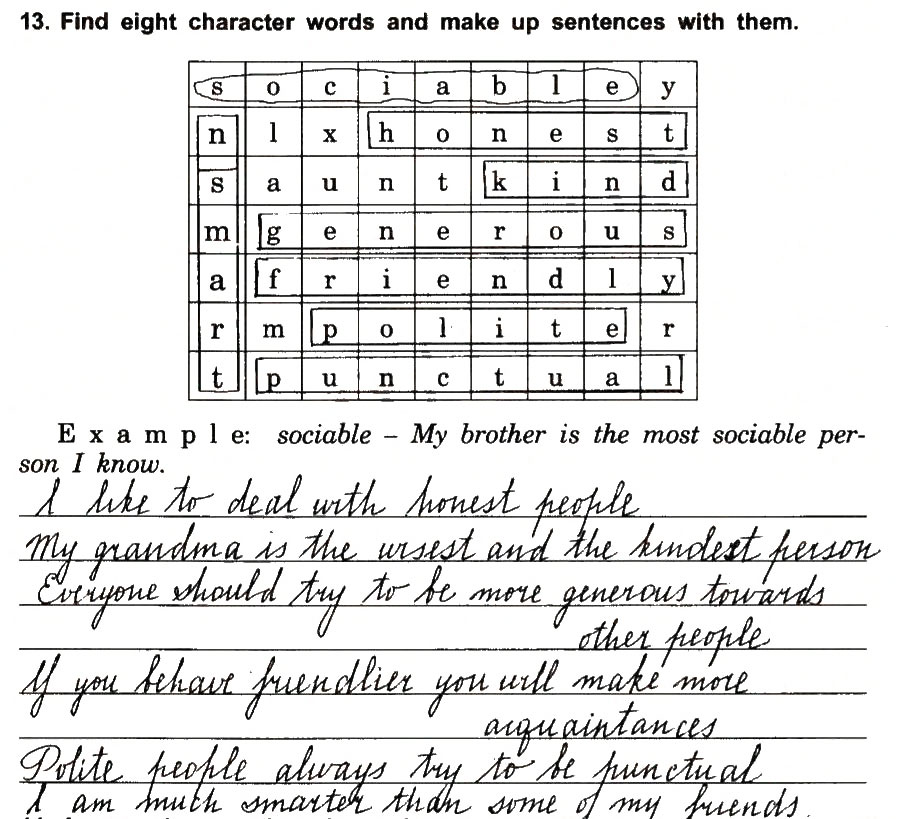 13. Find eight character words and make up sentences with them.
s o c i a b l e y
n l x h o n e s t
s a u n t k i n d
m g e n e r o u s
a f r i e n d l y
r m p o l i t e r
t p u n c t u a l
Example: sociable – My brother is the most sociable per-
son I know.
I like to deal with honest people
My grandma is the wisest and the kindest person
Everyone should try to be more generous towards
other people
If you behave friendlier you will make more
acquaintances
Polite people always try to be punctual
I am much smarter than some of my friends.